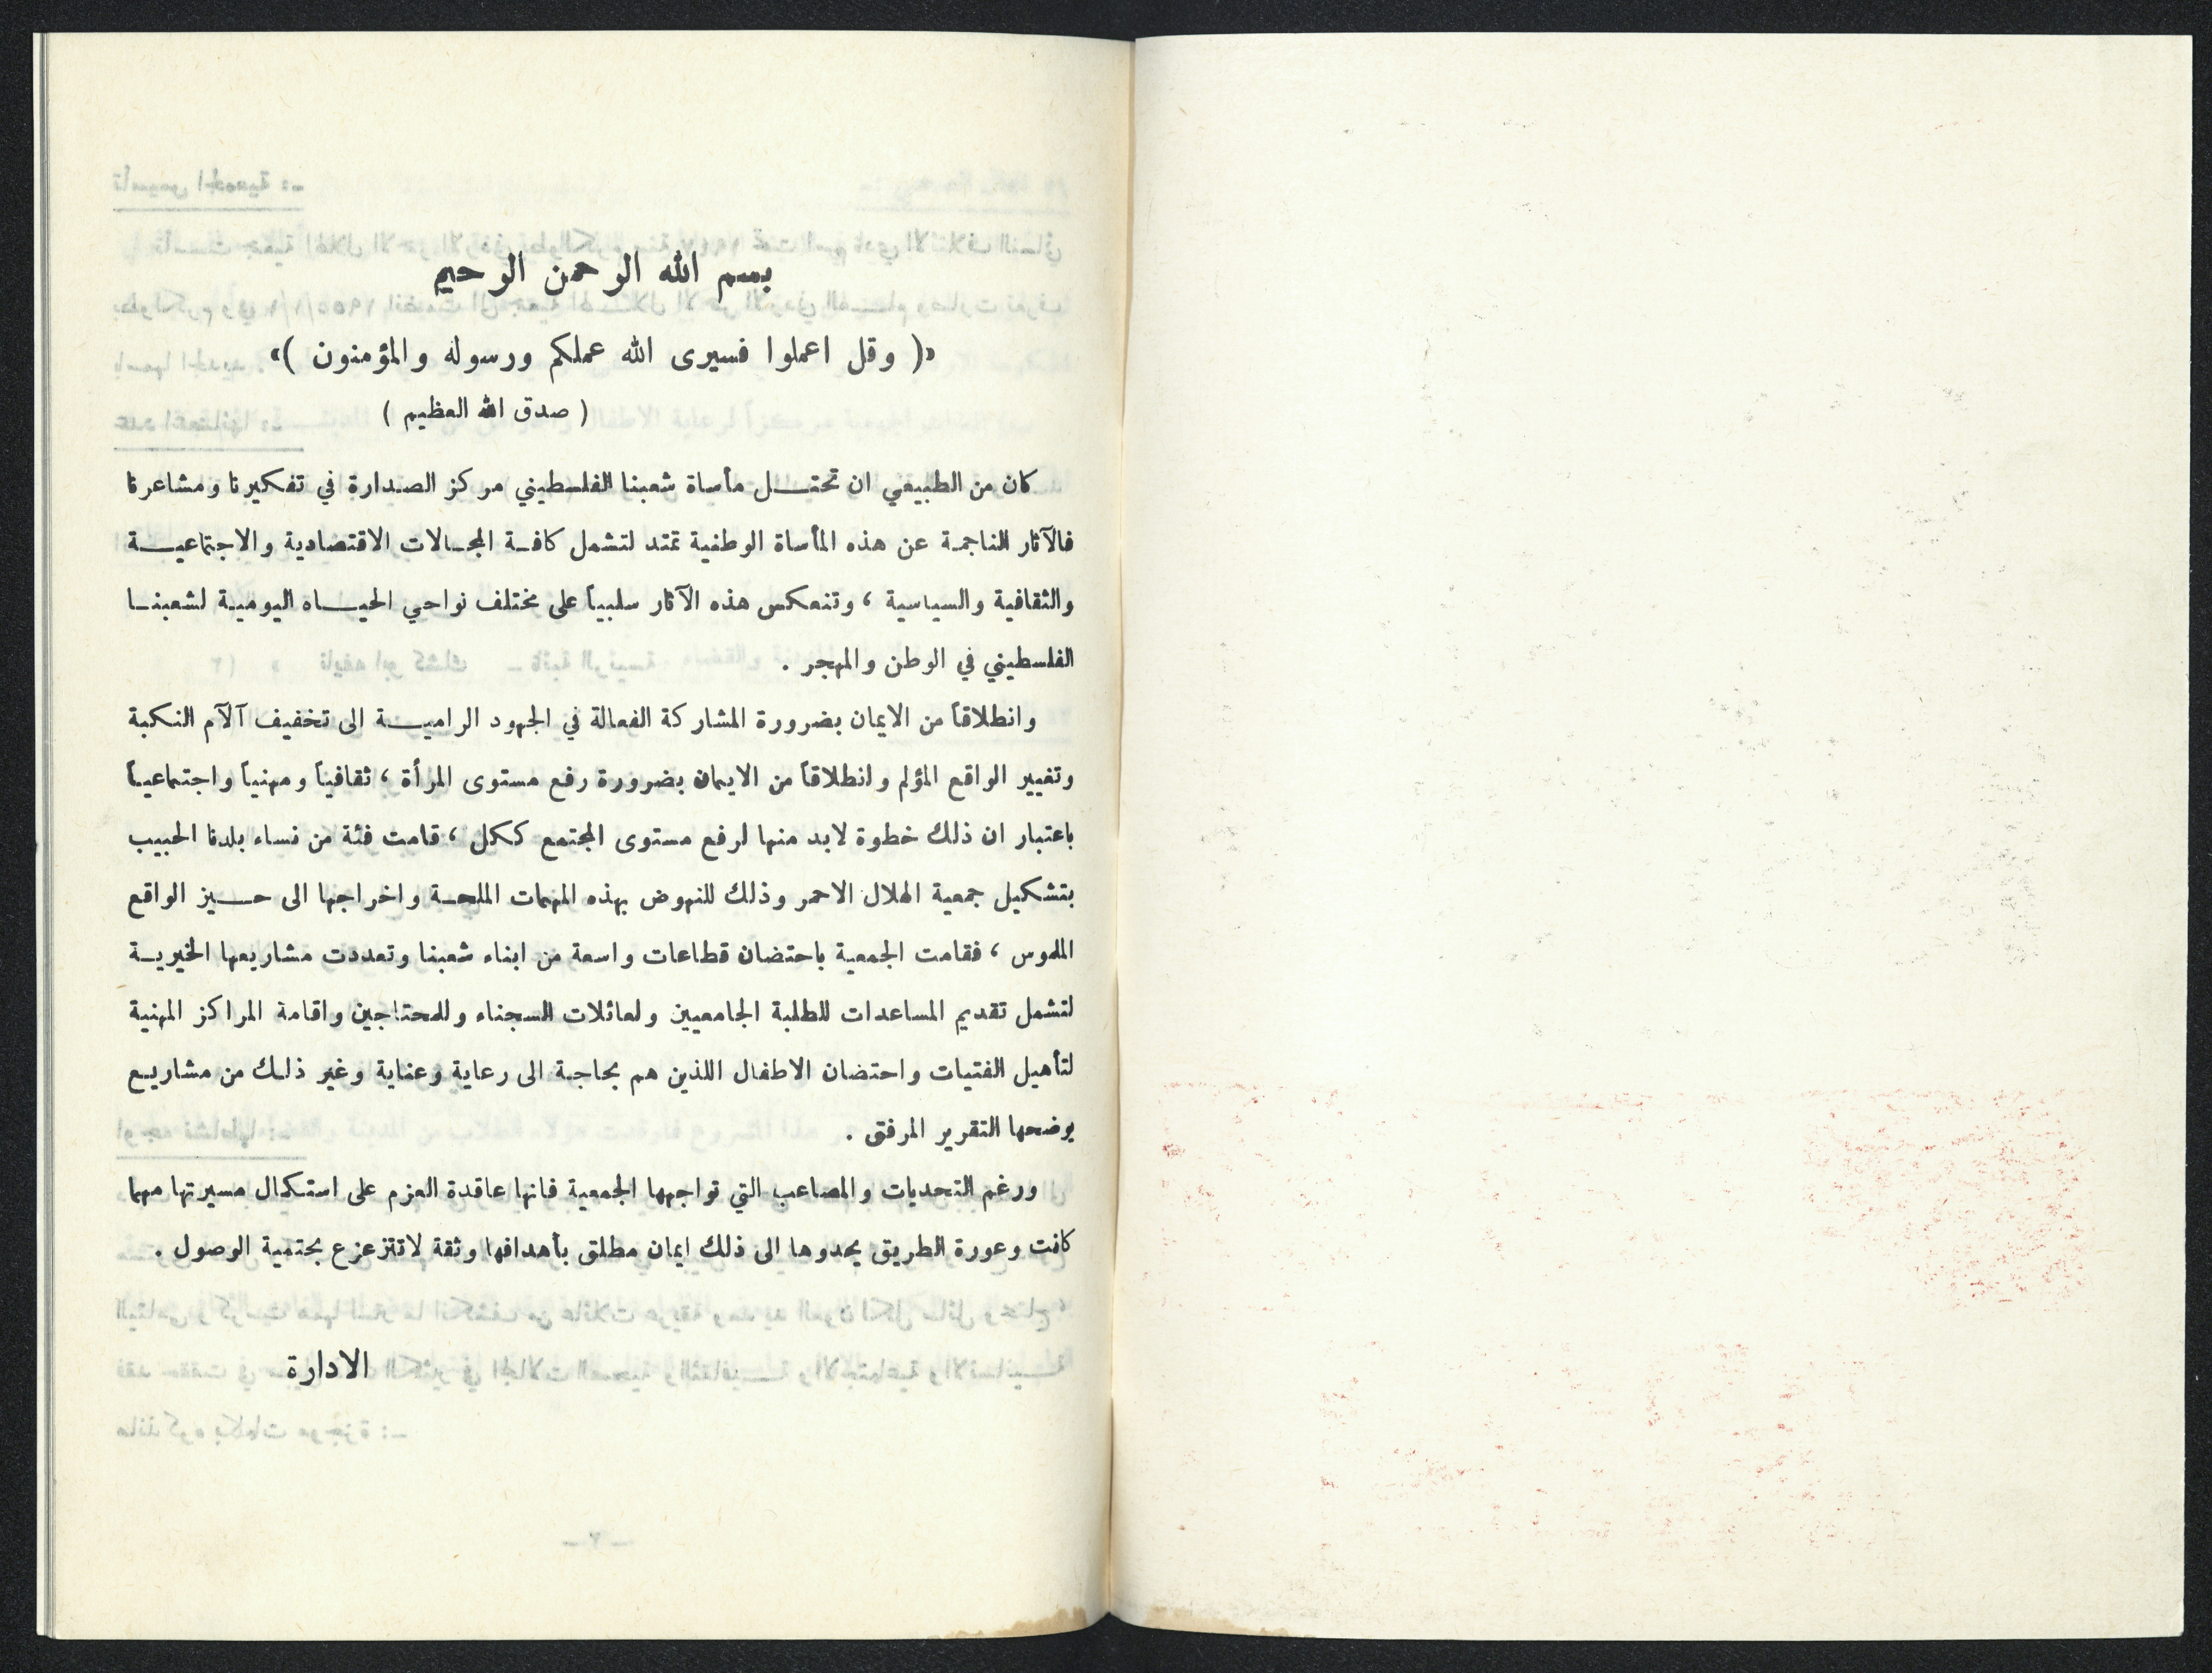 بسم الله الرحمن الرحيم
«( وقل اعملوا فسيرى الله عملكم ورسوله والمؤمنون )»
( صدق الله العظيم )
كان من الطبيعي ان تحتــل مأساة شعبنا الفلسطيني مركز الصدارة في تفكيرنا ومشاعرنا
فالآثار الناجمة عن هذه المأساة الوطنية تمتد لتشمل كافة المجالات الاقتصادية والاجتماعيــة
والثقافية والسياسية ، وتنعكس هذه الآثار سلبياً على مختلف نواحي الحيــاه اليومية لشعبنا
الفلسطيني في الوطن والمهجر .
وانطلاقاً من الايمان بضرورة المشاركة الفعالة في الجهود الراميــة الى تخفيف آلآم النكبة
وتغيير الواقع المؤلم وانطلاقاً من الايمان بضرورة رفع مستوى المرأة ، ثقافياً ومهنياً واجتماعياً
باعتبار ان ذلك خطوة لابد منها لرفع مستوى المجتمع ككل ، قامت فئة من نساء بلدنا الحبيب
بتشكيل جمعية الهلال الاحمر وذلك للنهوض بهذه المهمات الملحـة واخراجها الى حــيز الواقع
الملموس ، فقامت الجمعية باحتضان قطاعات واسعة من ابناء شعبنا وتعددت مشاريعها الخيريـة
لتشمل تقديم المساعدات للطلبة الجامعيين ولعائلات السجناء وللمحتاجين واقامة المراكز المهنية
لتأهيل الفتيات واحتضان الاطفال اللذين هم بحاجة الى رعاية وعناية وغير ذلك من مشاريع
يوضحها التقرير المرفق .
ورغم التحديات والمصاعب التي تواجهها الجمعية فانها عاقدة العزم على استكمال مسيرتها مهما
كانت وعورة الطريق يحدوها الى ذلك ايمان مطلق بأهدافها وثقة لاتتزعزع بحتمية الوصول .
الادارة